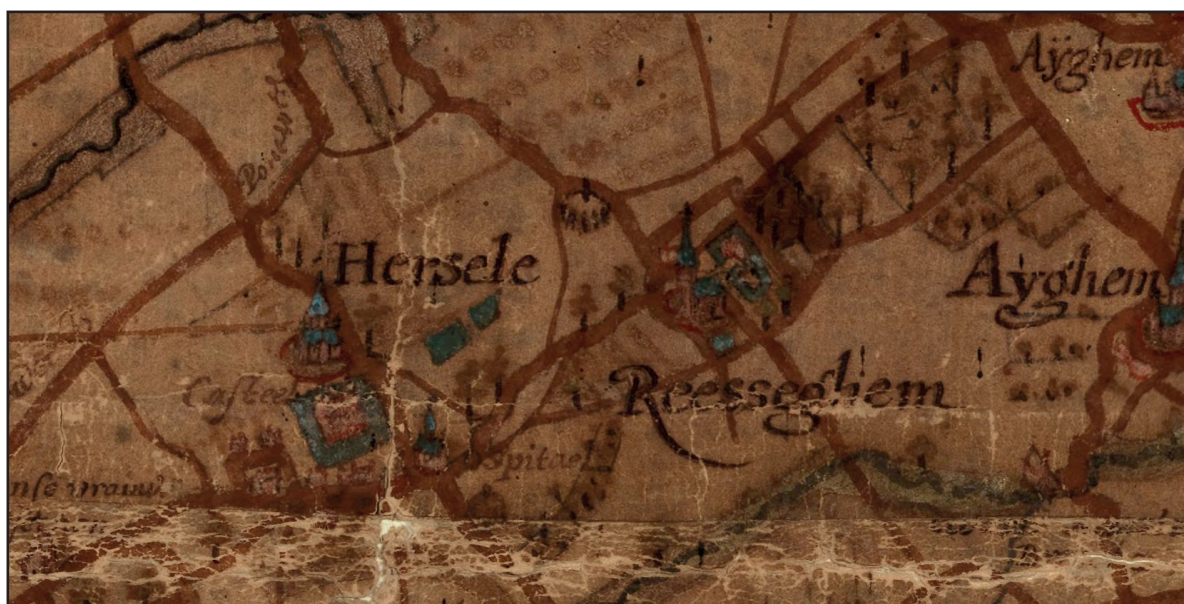 Aÿghem
Hersele
Aÿghem
Casteel
Reesseghem
Spitael